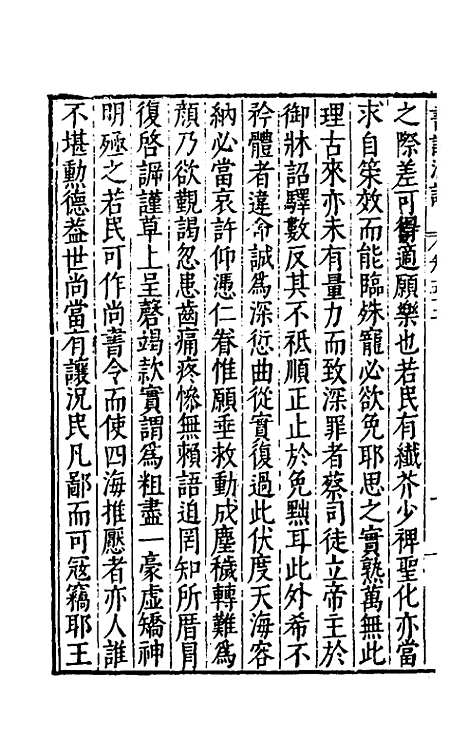 之際差可得適願樂也若民有纖芥少裨聖化亦當
求自策效而能臨殊寵必欲免耶思之實熟萬無此
理古來亦未有量力而致深罪者蔡司徒立帝主於
御牀詔驛數反其不祗順正止於免黜耳此外希不
矜體者違命誠爲深愆曲從實復過此伏度天海容
納必當哀許仰憑仁眷惟願垂救動成塵穢轉難爲
顔乃欲觀謁忽患齒痛疼慘無賴語迫罔知所厝冐
復啓謘謹草上呈罄竭款實謂爲粗盡一豪虛矯神
明殛之若民可作尚書令而使四海推壓者亦人誰
不堪勳德葢世尚當有讓況民凡鄙而可𡨥竊耶王